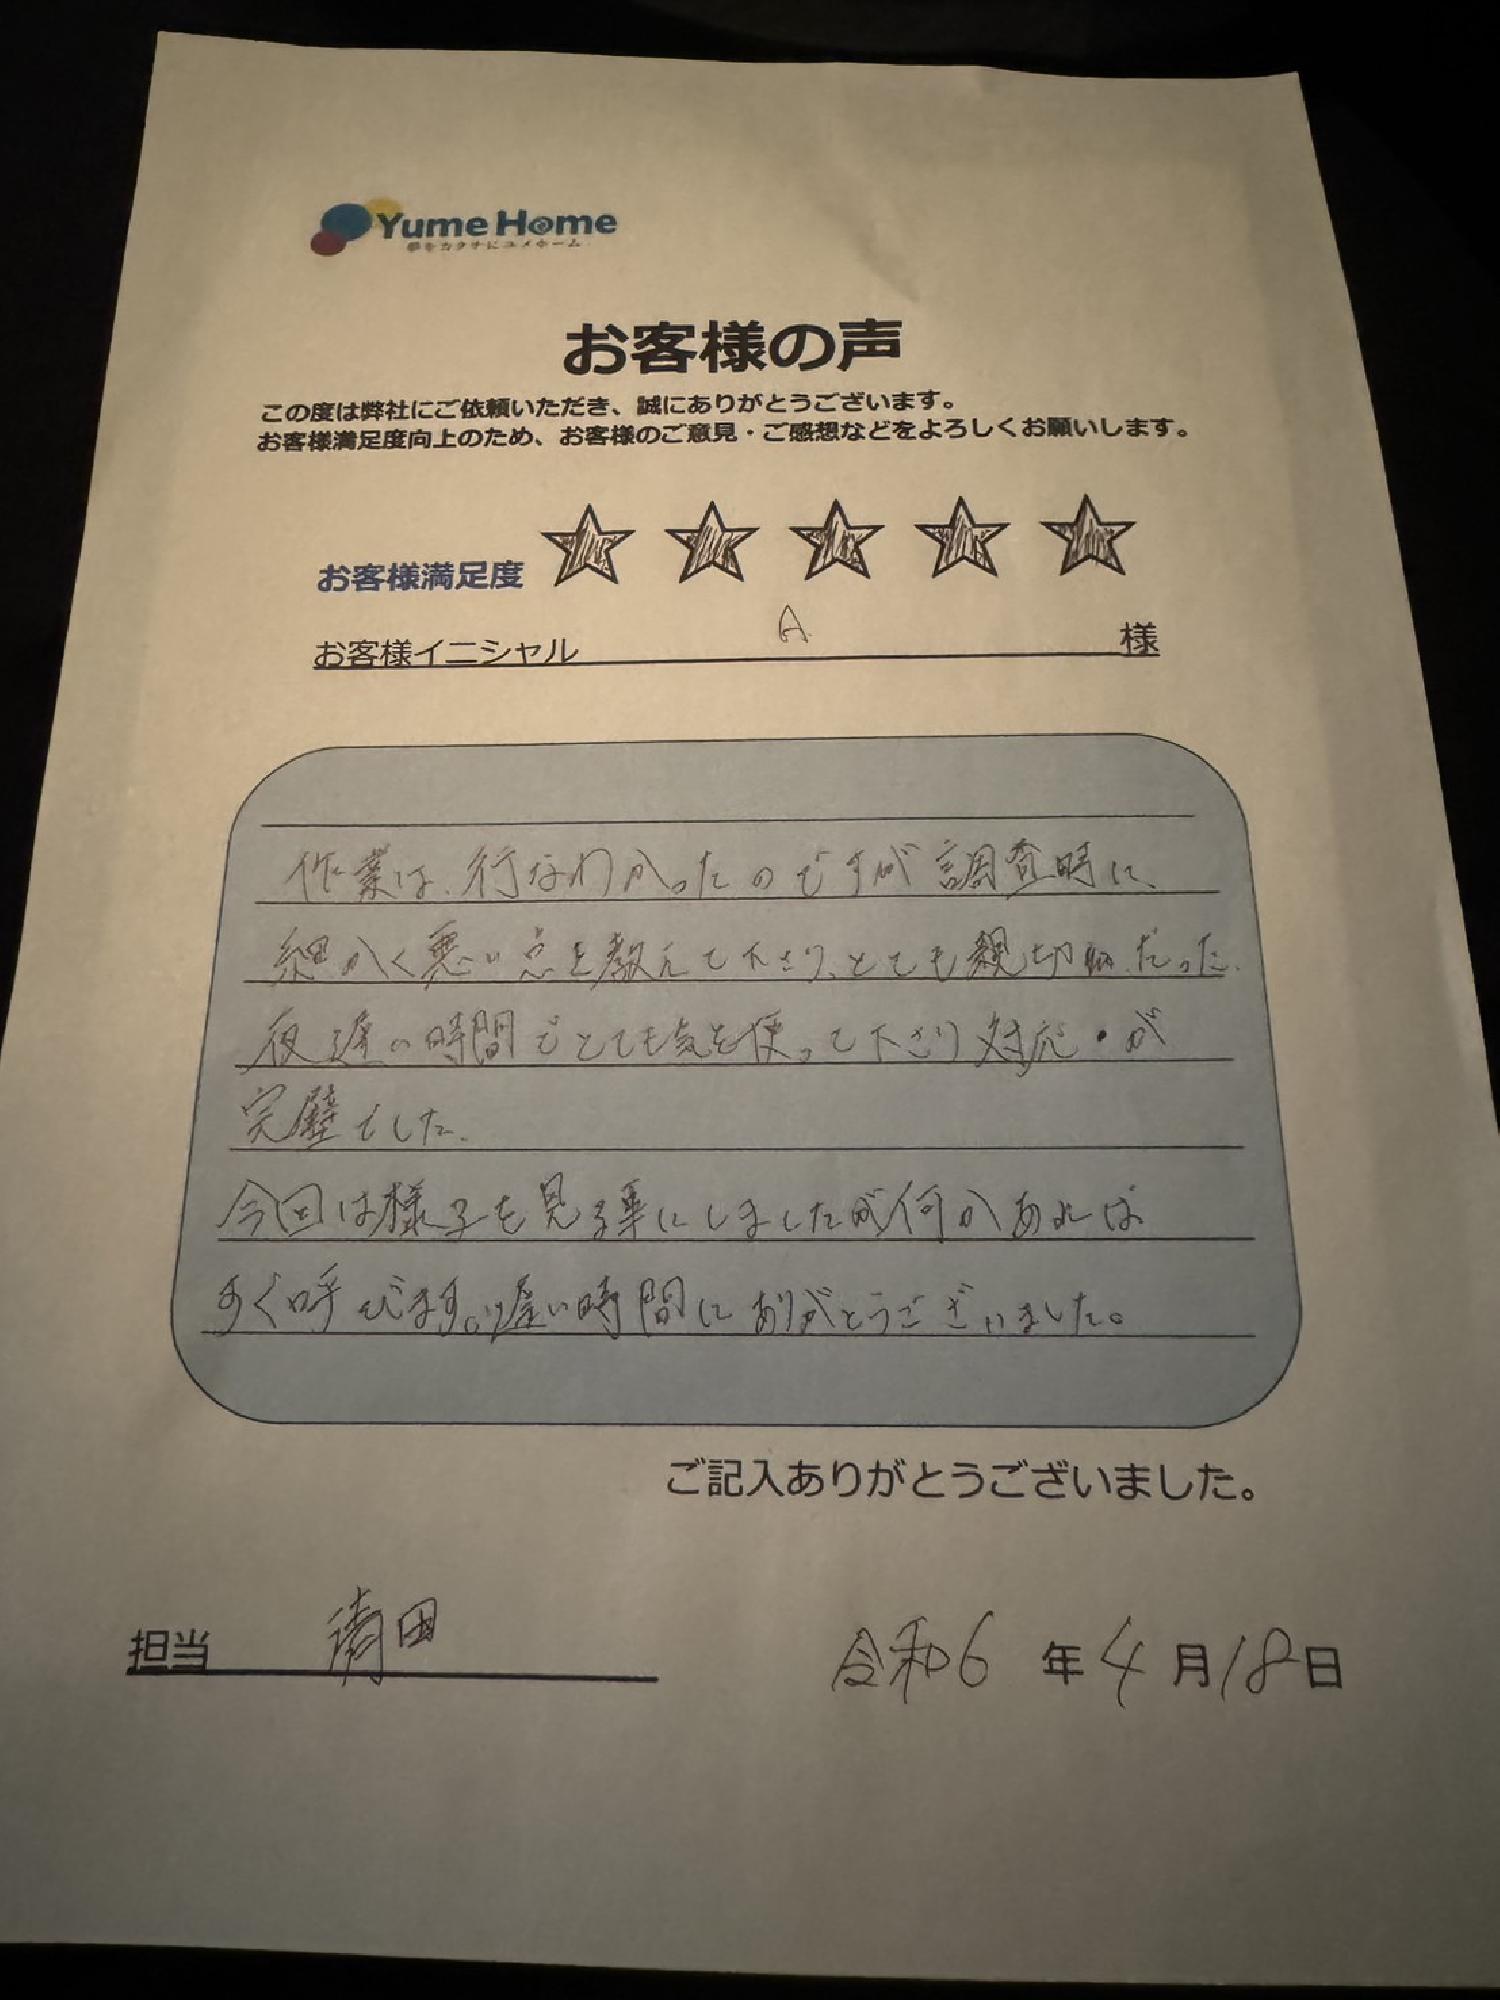 Yume Home
夢をカタチにユメホーム
お客様の声
この度は弊社にご依頼いただき、誠にありがとうございます。
お客様満足度向上のため、お客様のご意見・ご感想などをよろしくお願いします。
お客様満足度
お客様イニシャル A 様
作業は、行なわかったのですが調査時に
細かく悪い点を教えて下さり、とても親切だった。
夜遅い時間でとても気を使って下さり対応・が
完璧でした。
今回は様子を見る事にしましたが何かあれば
すぐ呼びます。遅い時間にありがとうございました。
ご記入ありがとうございました。
担当 清田
令和6年4月18日